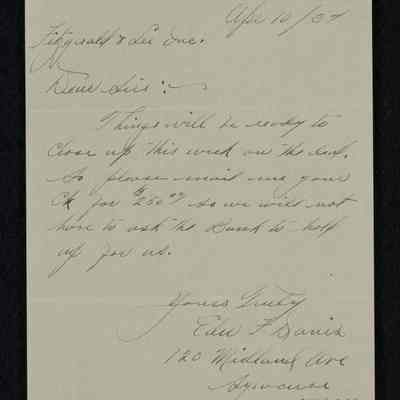 Apr 10/34
Fitzgerald & Lee Inc.
Dear Sirs:
Things will be ready to
close up this week on the
So please mail me your
Ck for $250.00 as we will not
have to ask the Bank to help
up for us.
Yours Truly
Edw F Davis
120 Midland Ave
Syracuse